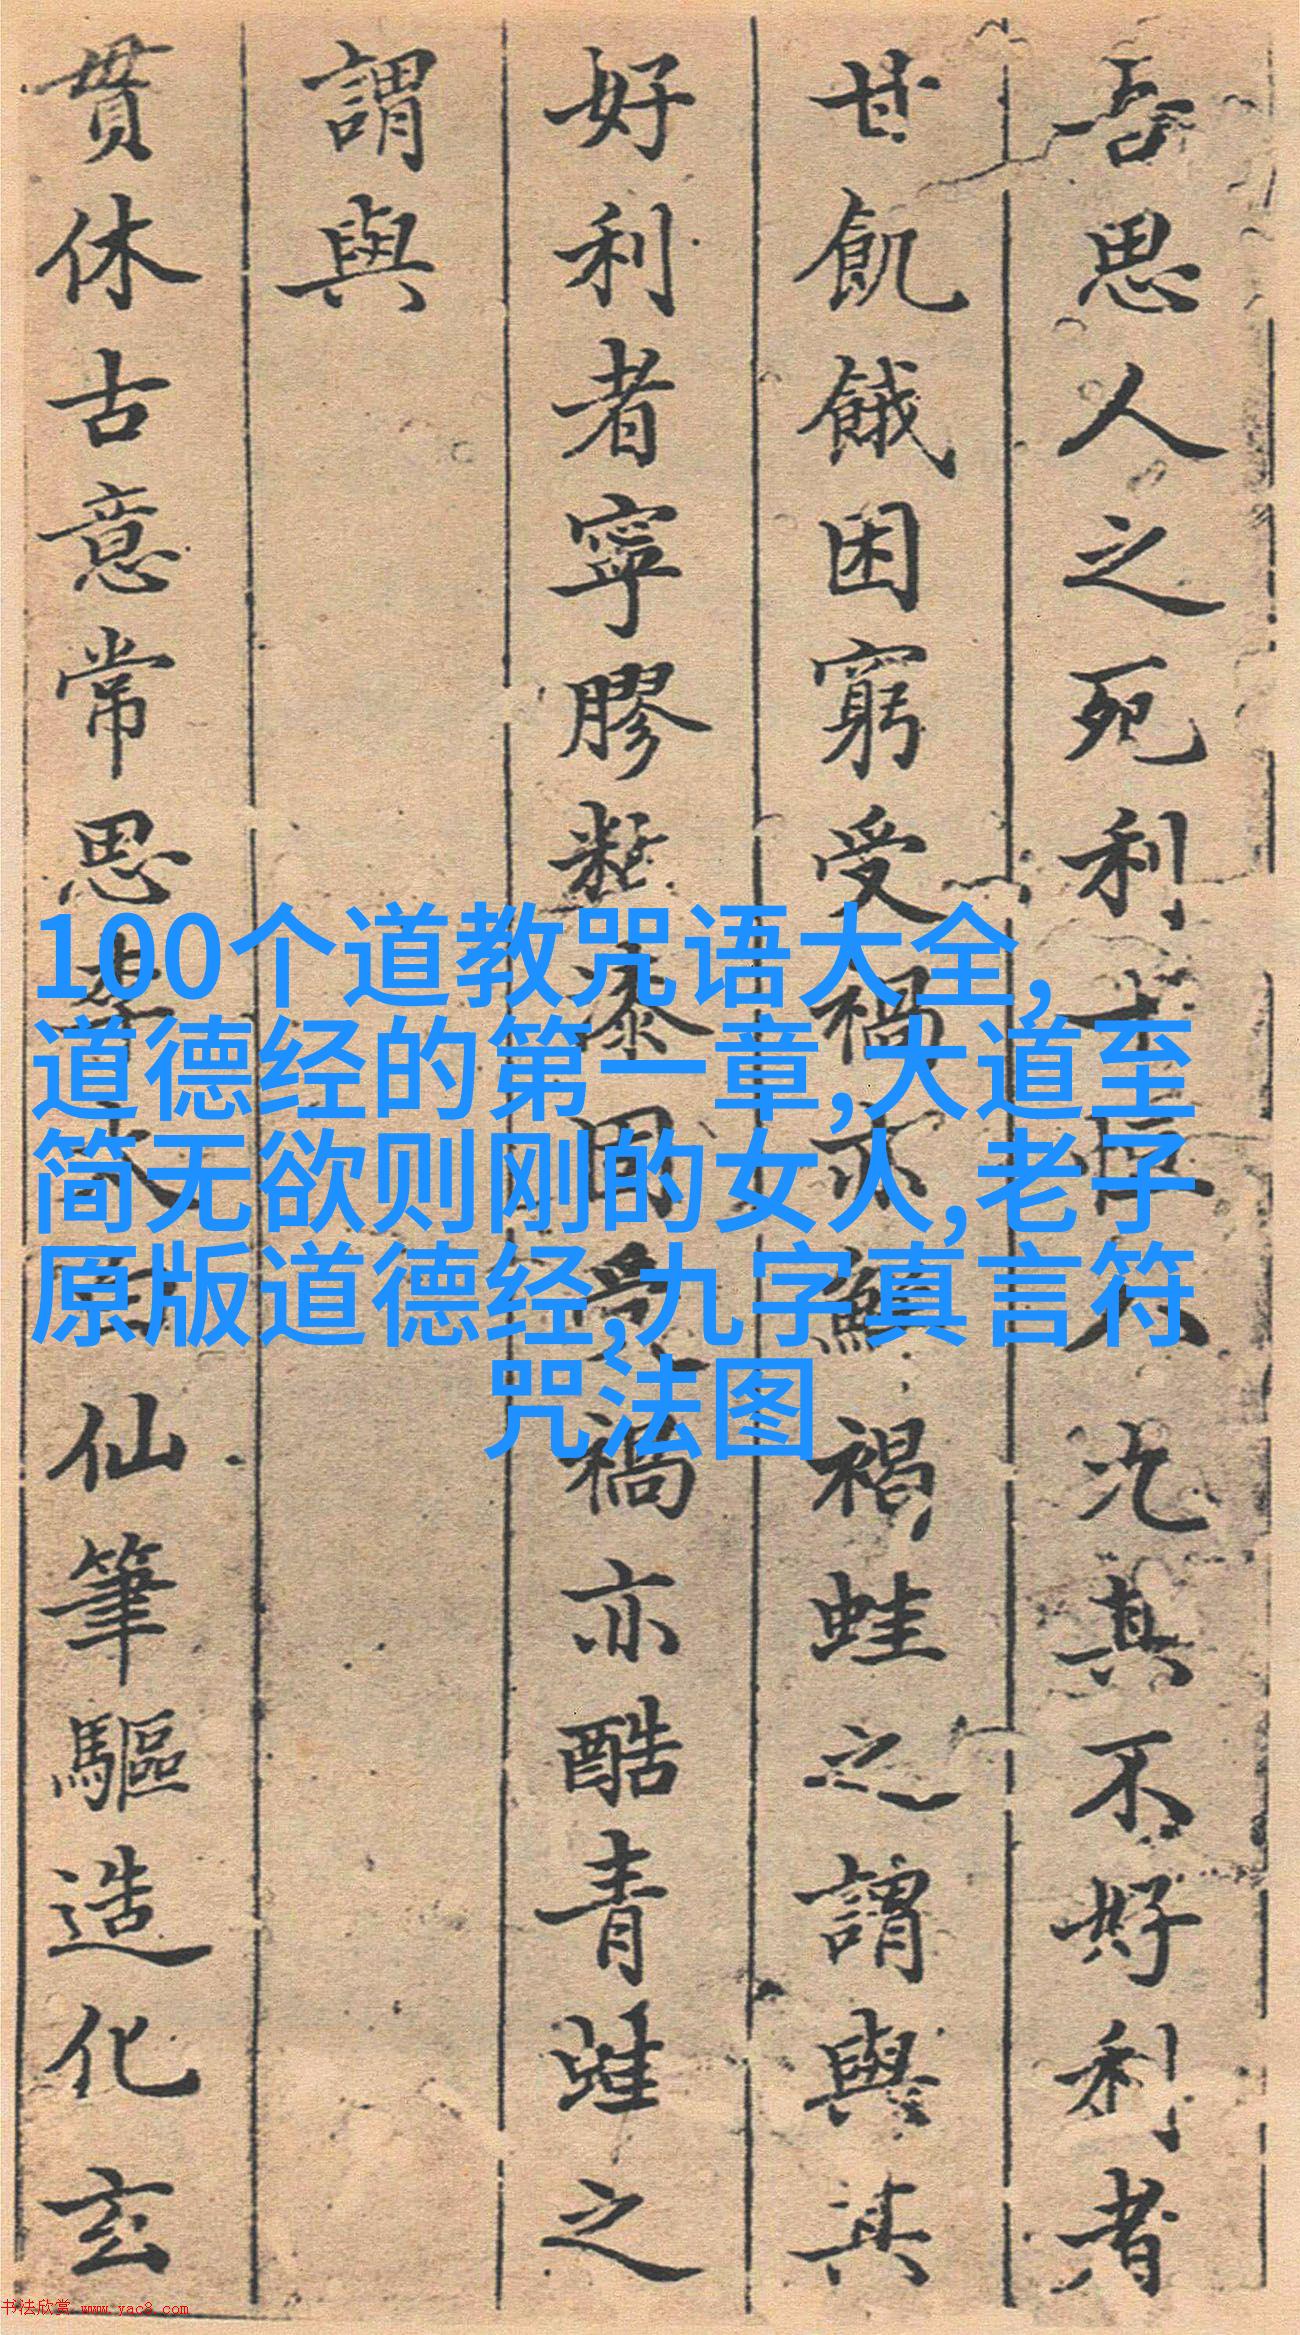 吾思人之死利 人 其不好利者
甘飢餓困窮受禍亦 褐蛙之謂與其
好利者寧膠 漆 禍亦酷青蛙之
謂與
貫休古意常思 仙筆驅造化玄
100个道教咒语大全,
道德经的第一章,大道至
简无欲则刚的女人,老子
原版道德经,九字真言符
咒法图
书法欣赏 www.yac8.com